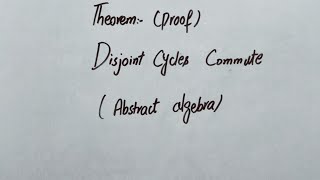 Theorem:- (Proof)
Disjoint Cycles Commute
( Abstract algebra)